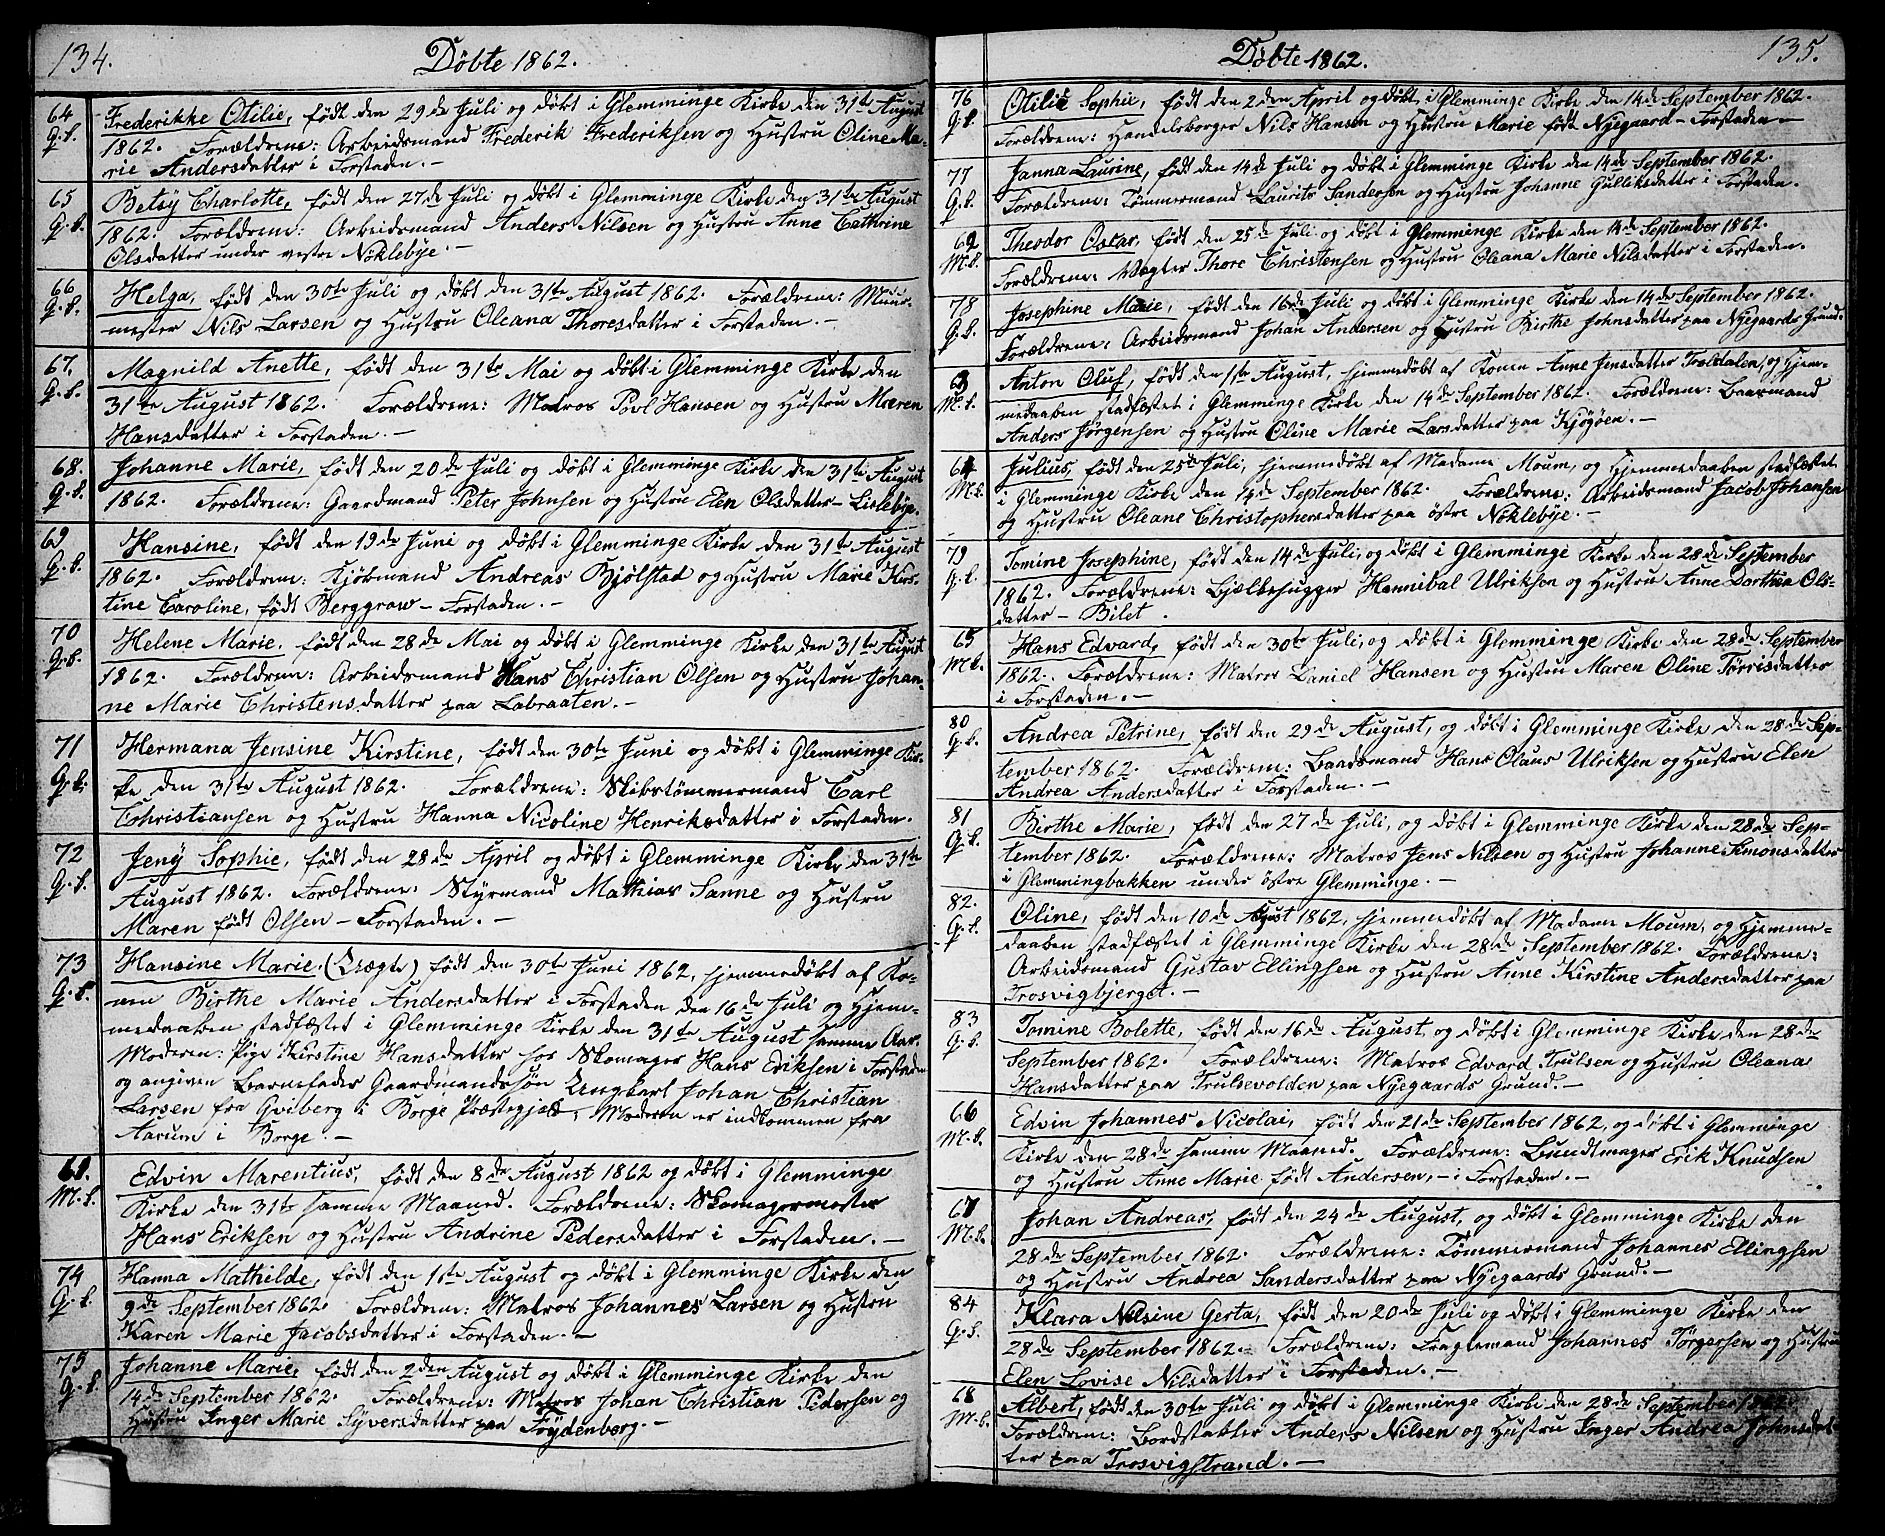 134.
Döbte 1862.
64 Frederikke Otilie, födt den 29de Juli og döbt i Glemminge Kirke den 31te August
Q.k. 1862. Forældrene: Arbeidsmand Frederik Frederiksen og Hustru Oline Ma-
rie Andersdatter i Forstaden. –
65 Betsÿ Charlotte, födt den 27de Juli og döbt i Glemminge Kirke den 31te August
Q.k. 1862. Forældrene: Arbeidsmand Anders Nilsen og Hustru Anne Cathrine
Olsdatter under vestre Nöklebÿe. –
66 Helga, födt den 30te Juli og döbt den 31te August 1862. Forældrene: Muur-
Q.k. mester Nils Larsen og Hustru Oleana Thoresdatter i Forstaden. –
67. Magnild Anette, födt den 31te Mai og döbt i Glemminge Kirke den
Q.k. 31te August 1862. Forældrene: Matros Povl Hansen og Hustru Maren
Hansdatter i Forstaden. –
68. Johanne Marie, födt den 20de Juli og döbt i Glemminge Kirke den 31te August
Q.k. 1862. Forældrene: Gaardmand Peter Johnsen og Hustru Elen Olsdatter – Lislebÿe.
69 Hansine, födt den 19de Juni og döbt i Glemminge Kirke den 31te August
Q.k. 1862. Forældrene: Kjöbmand Andreas Bjölstad og Hustru Marie Kirs-
tine Caroline, födt Berggraw – Forstaden. –
70 Helene Marie, födt den 28de Mai og döbt i Glemminge Kirke den 31te August
Q.k. 1862. Forældrene: Arbeidsmand Hans Christian Olsen og Hustru Johan-
ne Marie Christensdatter paa Labraaten. –
71 Hermana Jensine Kirstine, födt den 30te Juni og döbt i Glemminge Kir-
Q.k. ke den 31te August 1862. Forældrene: Skibstömmermand Carl
Christiansen og Hustru Hanna Nicoline Henriksdatter i Forstaden.
72 Jenÿ Sophie, födt den 28de April og döbt i Glemminge Kirke den 31te
Q.k. August 1862. Forældrene: Stÿrmand Mathias Sanne og Hustru
Maren födt Olsen – Forstaden. –
73 Hansine Marie, (Uægte) födt den 30te Juni 1862, hjemmedöbt af Ko-
Q.k. nen Birthe Marie Andersdatter i Forstaden den 16de Juli og Hjem-
medaaben stadfæstet i Glemminge Kirke den 31te August samme Aar.
Moderen: Pige Kirstine Hansdatter hos Skomager Hans Eriksen i Forstaden
og angiven Barnefader Gaardmandssön Ungkarl Johan Christian
Larsen fra Gviberg i Borge Præstegjeld; Moderen er indkommen fra
Aarum i Borge. –
61. Edvin Marentius, födt den 8de August 1862 og döbt i Glemminge
M.k. Kirke den 31te samme Maaned. Forældrene: Skomagermester
Hans Eriksen og Hustru Andrine Pedersdatter i Forstaden. –
74 Hanna Mathilde, födt den 1ste August og döbt i Glemminge Kirke den
Q.k. 9de September 1862. Forældrene: Matros Johannes Larsen og Hustru
Karen Marie Jacobsdatter i Forstaden. –
75 Johanne Marie, födt den 2den August og döbt i Glemminge Kirke den
Q.k. 14de September 1862. Forældrene: Matros Johan Christian Pedersen og
Hustru Inger Marie Sÿversdatter paa Fröÿdenberg. –
135.
Döbte 1862.
76 Otilie Sophie, födt den 2den April og döbt i Glemminge Kirke den 14de September 1862.
Q.k. Forældrene: Handelsborger Nils Hansen og Hustru Marie födt Nÿegaard – Forstaden –
77 Janna Laurine, födt den 14de Juli og döbt i Glemminge Kirke den 14de September 1862.
Q.k. Forældrene: Tömmermand Laurits Sandersen og Hustru Johanne Gulliksdatter i Forstaden.
62 Theodor Oscar, födt den 25de Juli og döbt i Glemminge Kirke den 14de September 1862.
M.k. Forældrene: Vægter Thore Christensen og Hustru Oleana Marie Nilsdatter i Forstaden.
78 Josephine Marie, födt den 16de Juli og döbt i Glemminge Kirke den 14de September 1862.
Q.k. Forældrene: Arbeidsmand Johan Andersen og Hustru Birthe Johnsdatter paa Nÿegaards Grund.
63 Anton Oluf, födt den 1ste August, hjemmedöbt af Konen Anne Jensdatter Traldalen, og Hjem-
M.k. medaaben stadfæstet i Glemminge Kirke den 14de September 1862. Forældrene: Baarmand
Anders Jörgensen og Hustru Oline Marie Larsdatter paa Kjöÿöen. –
64 Julius, födt den 25de Juli, hjemmedöbt af Madame Moum, og Hjemmedaaben stadfæstet
M.k. i Glemminge Kirke den 14de September 1862. Forældrene: Arbeidsmand Jacob Johansen
og Hustru Oleane Christophersdatter paa östre Nöklebÿe. –
79 Tomine Josephine, födt den 14de Juli, og döbt i Glemminge Kirke den 28de September
Q.k. 1862. Forældrene: Bjælkehugger Hannibal Ulriksen og Hustru Anne Dorthea Ols-
datter – Bilet.
65 Hans Edvard, födt den 30te Juli, og döbt i Glemminge Kirke den 28de September
M.k. 1862. Forældrene: Matros Daniel Hansen og Hustru Maren Oline Törrisdatter
i Forstaden. –
80 Andrea Petrine, födt den 29de August, og döbt i Glemminge Kirke den 28de Sep-
Q.k. tember 1862. Forældrene: Baadsmand Hans Olaus Ulriksen og Hustru Elen
Andrea Andersdatter i Forstaden. –
81 Birthe Marie, födt den 27de Juli, og döbt i Glemminge Kirke den 28de Sep-
Q.k. tember 1862. Forældrene: Matros Jens Nilsen og Hustru Johanne Simonsdatter
i Glemmingbakken under östre Glemminge. –
82. Oline, födt den 10de August 1862, hjemmedöbt af Madame Moum, og Hjemme-
Q.k. daaben stadfæstet i Glemminge Kirke den 28de September 1862. Forældrene:
Arbeidsmand Gustav Ellingsen og Hustru Anne Kirstine Andersdatter paa
Trosvigbjerget. –
83 Tomine Bolette, födt den 16de August og döbt i Glemminge Kirke den 28de
Q.k. September 1862. Forældrene: Matros Edvard Trulsen og Hustru Oleana
Hansdatter paa Trulsevolden paa Nÿegaards Grund. –
66 Edvin Johannes Nicolai, födt den 21de September 1862, og döbt i Glemminge
M.k. Kirke den 28de samme Maaned. Forældrene: Bundtmager Erik Knudsen
og Hustru Anne Marie födt Andersen, – i Forstaden. –
67 Johan Andreas, födt den 24de August, og döbt i Glemminge Kirke den
M.k. 28de September 1862. Forældrene: Tömmermand Johannes Ellingsen
og Hustru Andrea Sandersdatter paa Nÿegaards Grund. –
84 Klara Nilsine Gerta, födt den 20de Juli og döbt i Glemminge Kirke den
Q.k. 28de September 1862. Forældrene: Fragtemand Johannes Törgersen og Hustru
Elen Lovise Nilsdatter i Forstaden. –
68 Albert, födt den 30te Juli og döbt i Glemminge Kirke den 28de September 1862.
M.k. Forældrene: Bordstabler Anders Nilsen og Hustru Inger Andrea Johnsdat-
ter paa Trosvigstrand. –